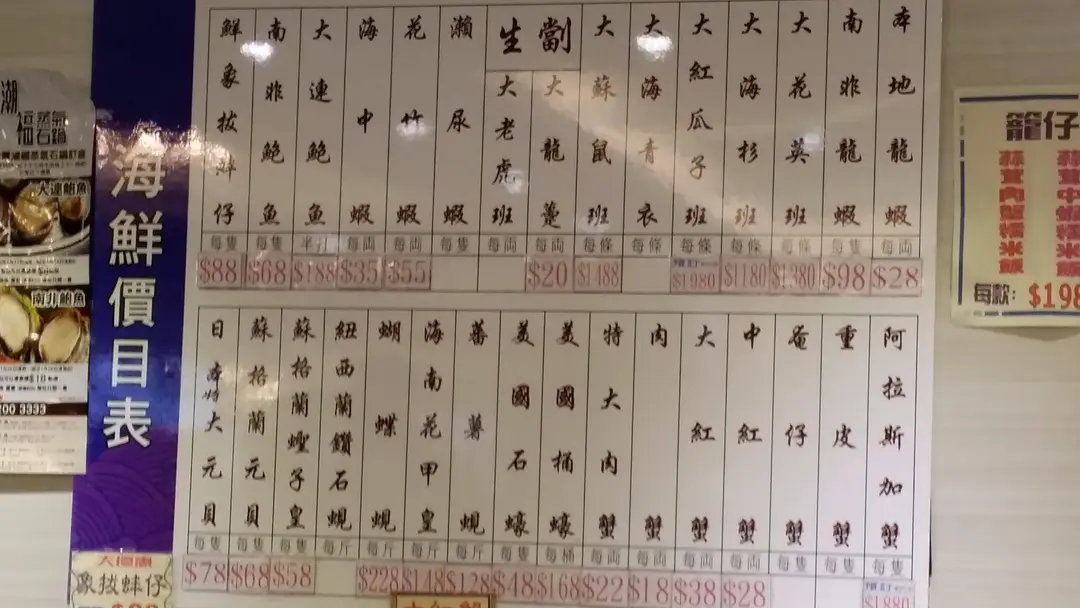 海鮮價目表
本地龍蝦 每両 $28
南非龍蝦 每隻 $98
大花英班 每條 $1380
大海杉班 每條 $1180
大紅瓜子班 每條 $1980
大海青衣 每條
大蘇鼠班 每條 $1488
生劏
大龍躉 每両 $20
大老虎班 每両
瀨尿蝦 每隻
花竹蝦 每両 $55
海中蝦 每両 $35
大連鮑魚 半打 $188
南非鮑魚 每隻 $68
鮮象拔蚌仔 每隻 $88
阿拉斯加蟹 每隻 $1880
重皮蟹 每隻
奄仔蟹 每隻
中紅蟹 每両 $28
大紅蟹 每両 $38
肉蟹 每両 $18
特大肉蟹 每両 $22
美國桶蠔 每桶 $168
美國石蠔 每隻 $48
蕃薯蜆 每斤 $128
海南花甲皇 每斤 $148
蝴蝶蜆 每斤 $228
紐西蘭鑽石蜆 每斤
蘇格蘭蟶子皇 每隻 $58
蘇格蘭元貝 每隻 $68
日本特大元貝 每隻 $78
籠仔
蒜茸中蝦糯米飯
蒜茸肉蟹糯米飯
每款: $198
潮福蒸氣石鍋
大連鮑魚
南非鮑魚
$18
3333
大優惠
象拔蚌仔